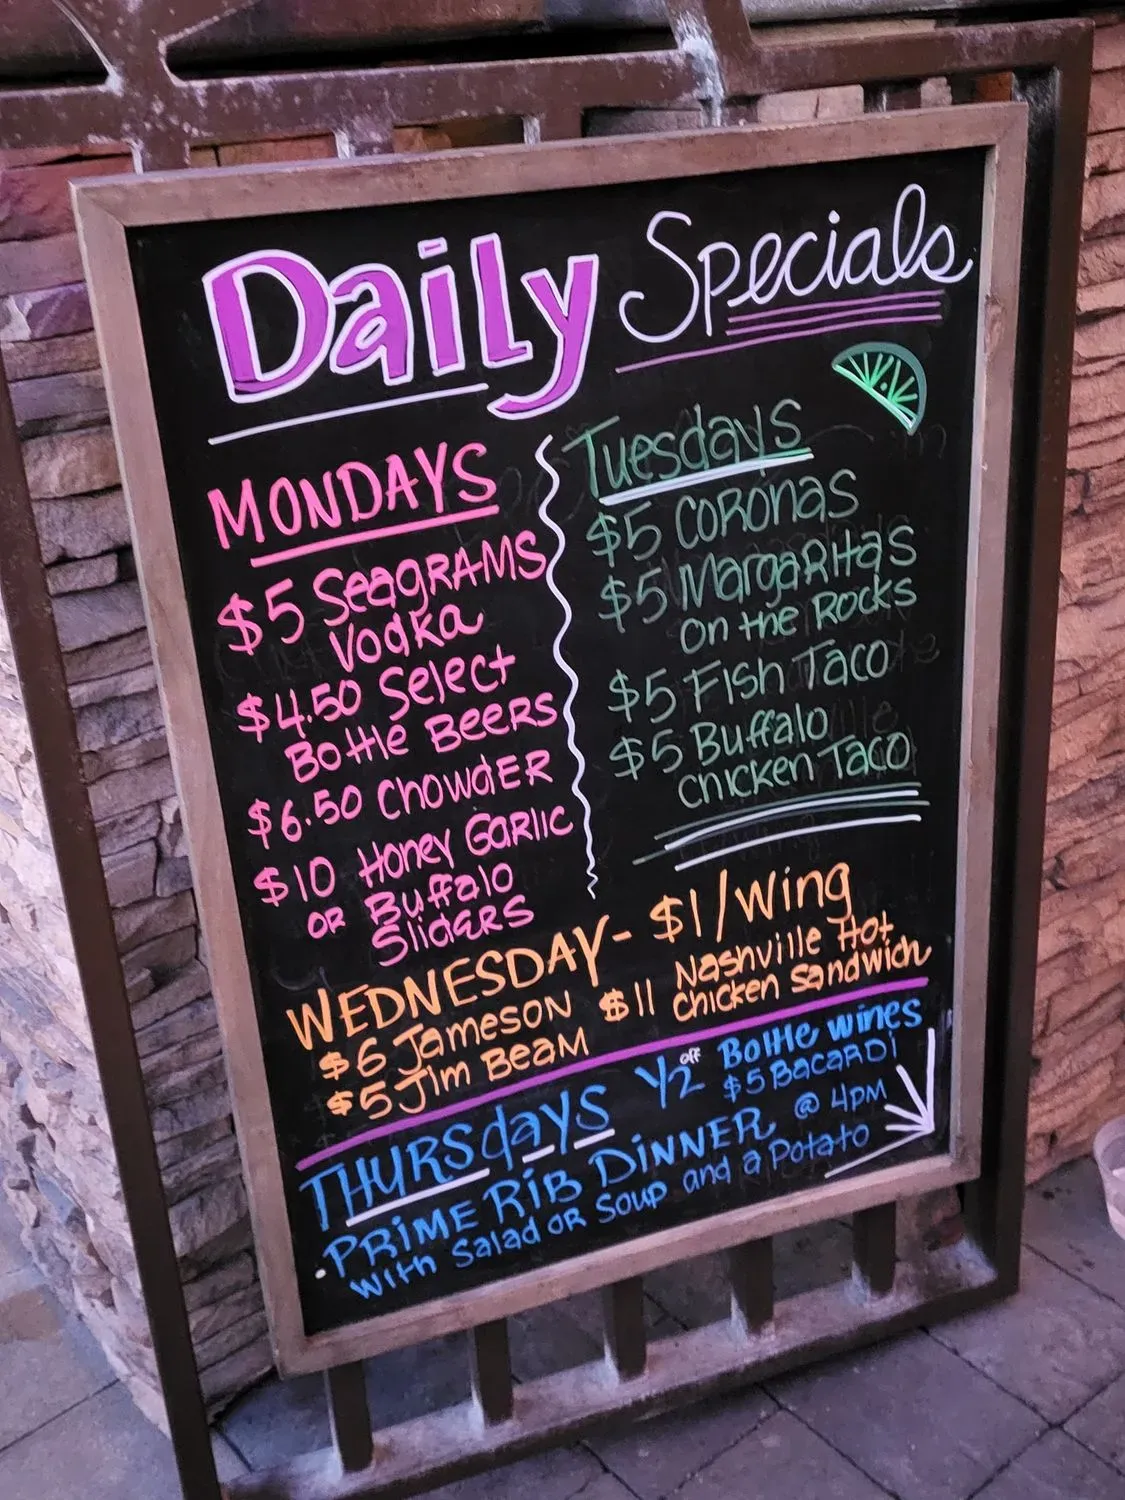 Daily Specials
MONDAYS
$5 SeagRAMS
Vodka
$4.50 Select
Bottle BEERS
$6.50 ChowdER
$10 Honey GaRlic
OR Buffalo
SlidERS
Tuesdays
$5 CoRonas
$5 MargaRitas
on the Rocks
$5 Fish Taco
$5 Buffalo
chicken Taco
WEDNESDAY - $1/Wing
$6 JamesoN
$5 Jim BeaM
$11 Nashville Hot
Chicken Sandwich
THURSdayS
1/2 off Bottle wines
$5 BacaRDi
PRiME RiB DiNNER @ 4PM
with Salad OR Soup and a Potato